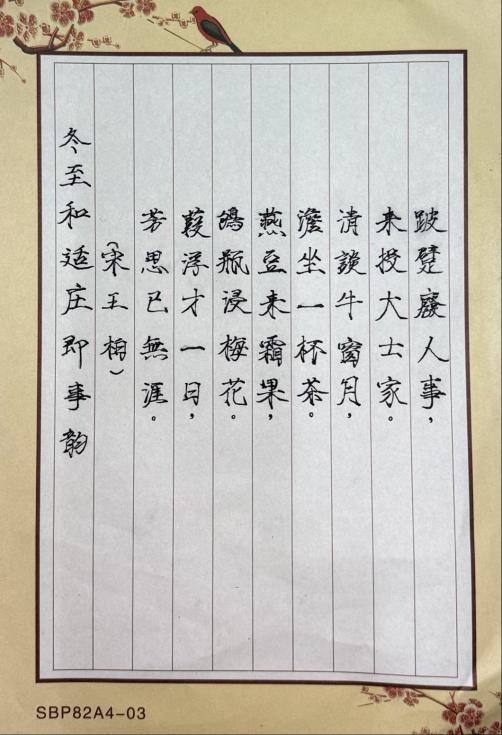 跛躄廢人事，
来投大士家。
清談半窗月，
澹坐一杯茶。
燕豆来霜果，
鴿瓶浸梅花。
葭浮才一日，
芳思已無涯。
（宋王柏）
冬至和适庄即事韵
SBP82A4-03